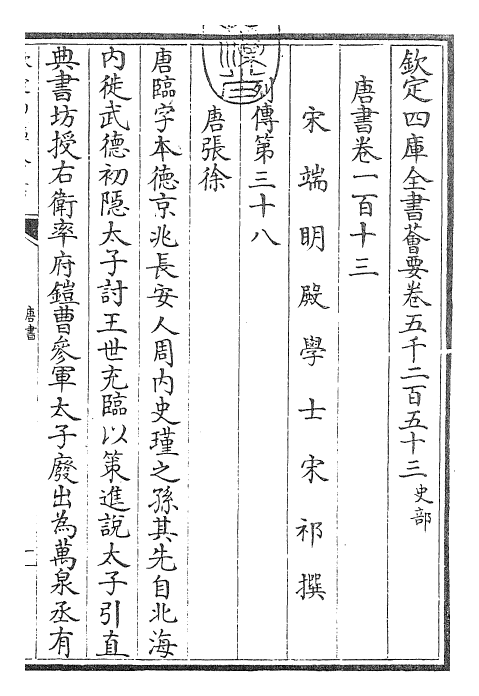 欽定四庫全書薈要卷五千二百五十三 史部
唐書卷一百十三
宋端明殿學士宋祁撰
列傳第三十八
唐張徐
唐臨字本德京兆長安人周内史瑾之孫其先自北海
内徙武德初隱太子討王世充臨以策進說太子引直
典書坊授右衛率府鎧曹參軍太子廢出為萬泉丞有
唐書